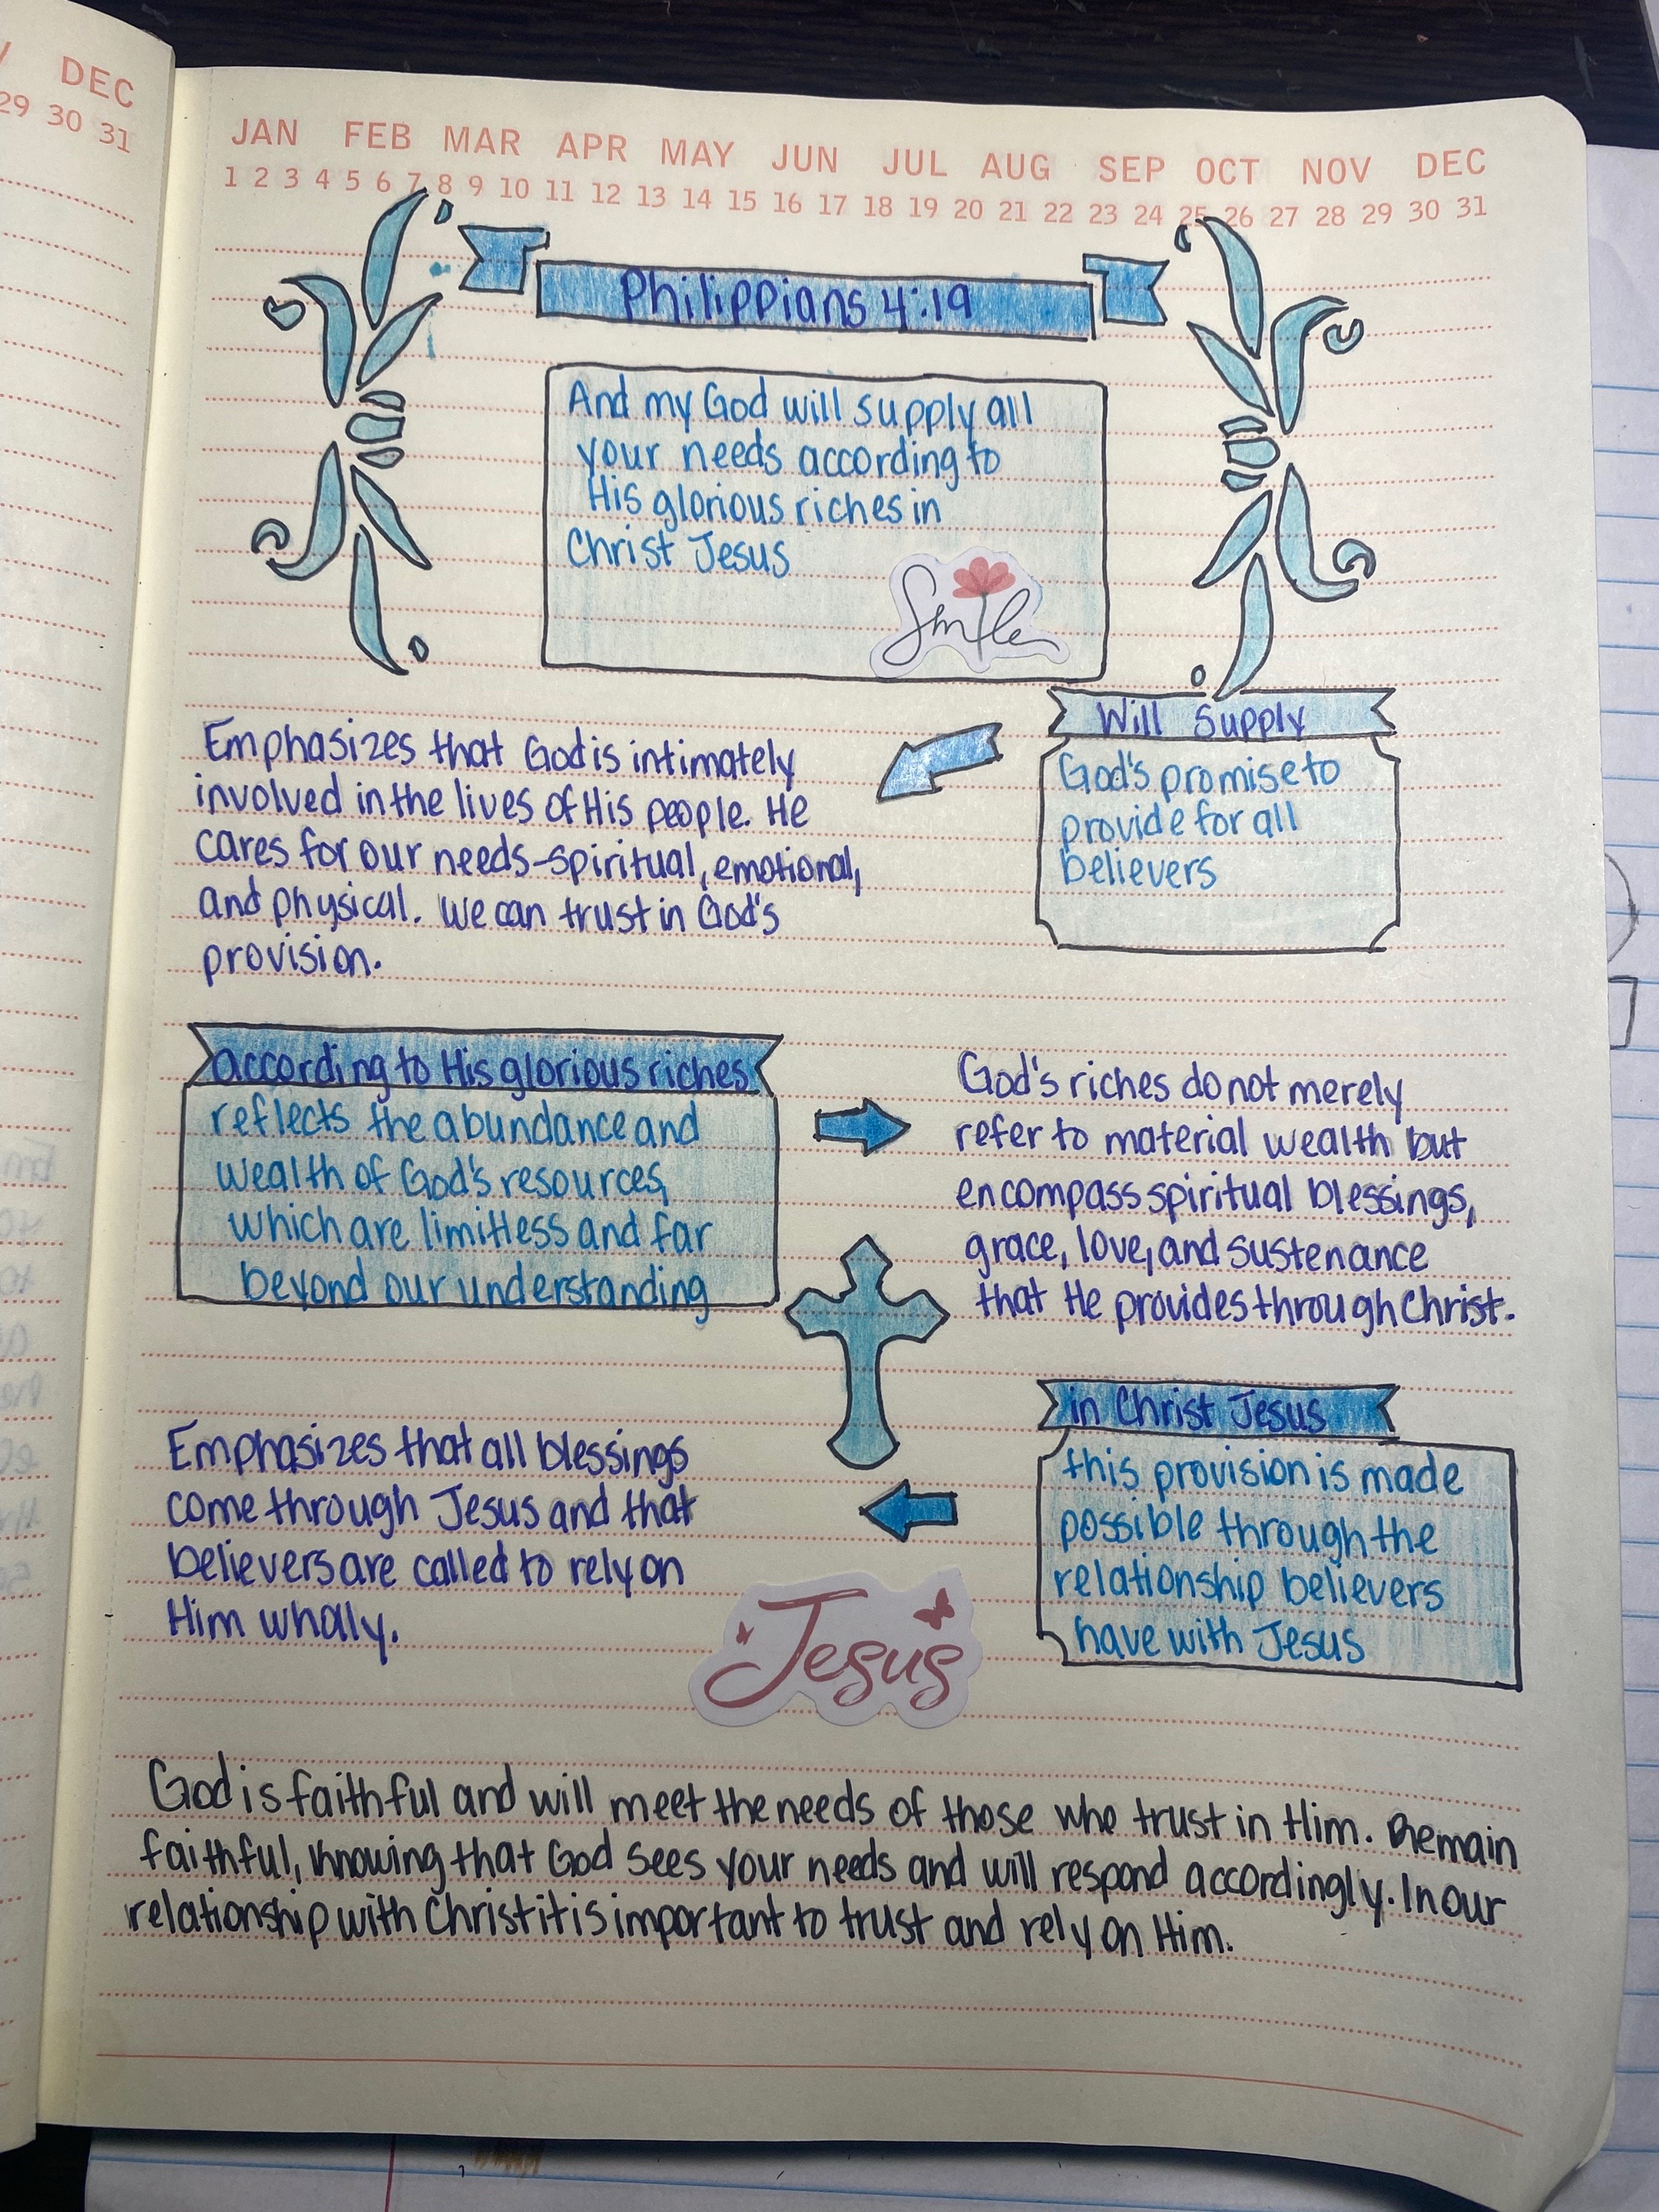 DEC
29 30 31
JAN FEB MAR APR MAY JUN JUL AUG SEP OCT NOV DEC
1 2 3 4 5 6 7 8 9 10 11 12 13 14 15 16 17 18 19 20 21 22 23 24 25 26 27 28 29 30 31
Philippians 4:19
And my God will supply all
your needs according to
His glorious riches in
Christ Jesus
Smile
Will Supply
God's promise to
provide for all
believers
Emphasizes that God is intimately
involved in the lives of His people. He
cares for our needs-spiritual, emotional,
and physical. We can trust in God's
provision.
according to His glorious riches
reflects the abundance and
wealth of God's resources,
which are limitless and far
beyond our understanding
God's riches do not merely
refer to material wealth but
encompass spiritual blessings,
grace, love, and sustenance
that He provides through Christ.
in Christ Jesus
this provision is made
possible through the
relationship believers
have with Jesus
Emphasizes that all blessings
come through Jesus and that
believers are called to rely on
Him wholly.
Jesus
God is faithful and will meet the needs of those who trust in Him. Remain
faithful, knowing that God sees your needs and will respond accordingly. In our
relationship with Christ it is important to trust and rely on Him.